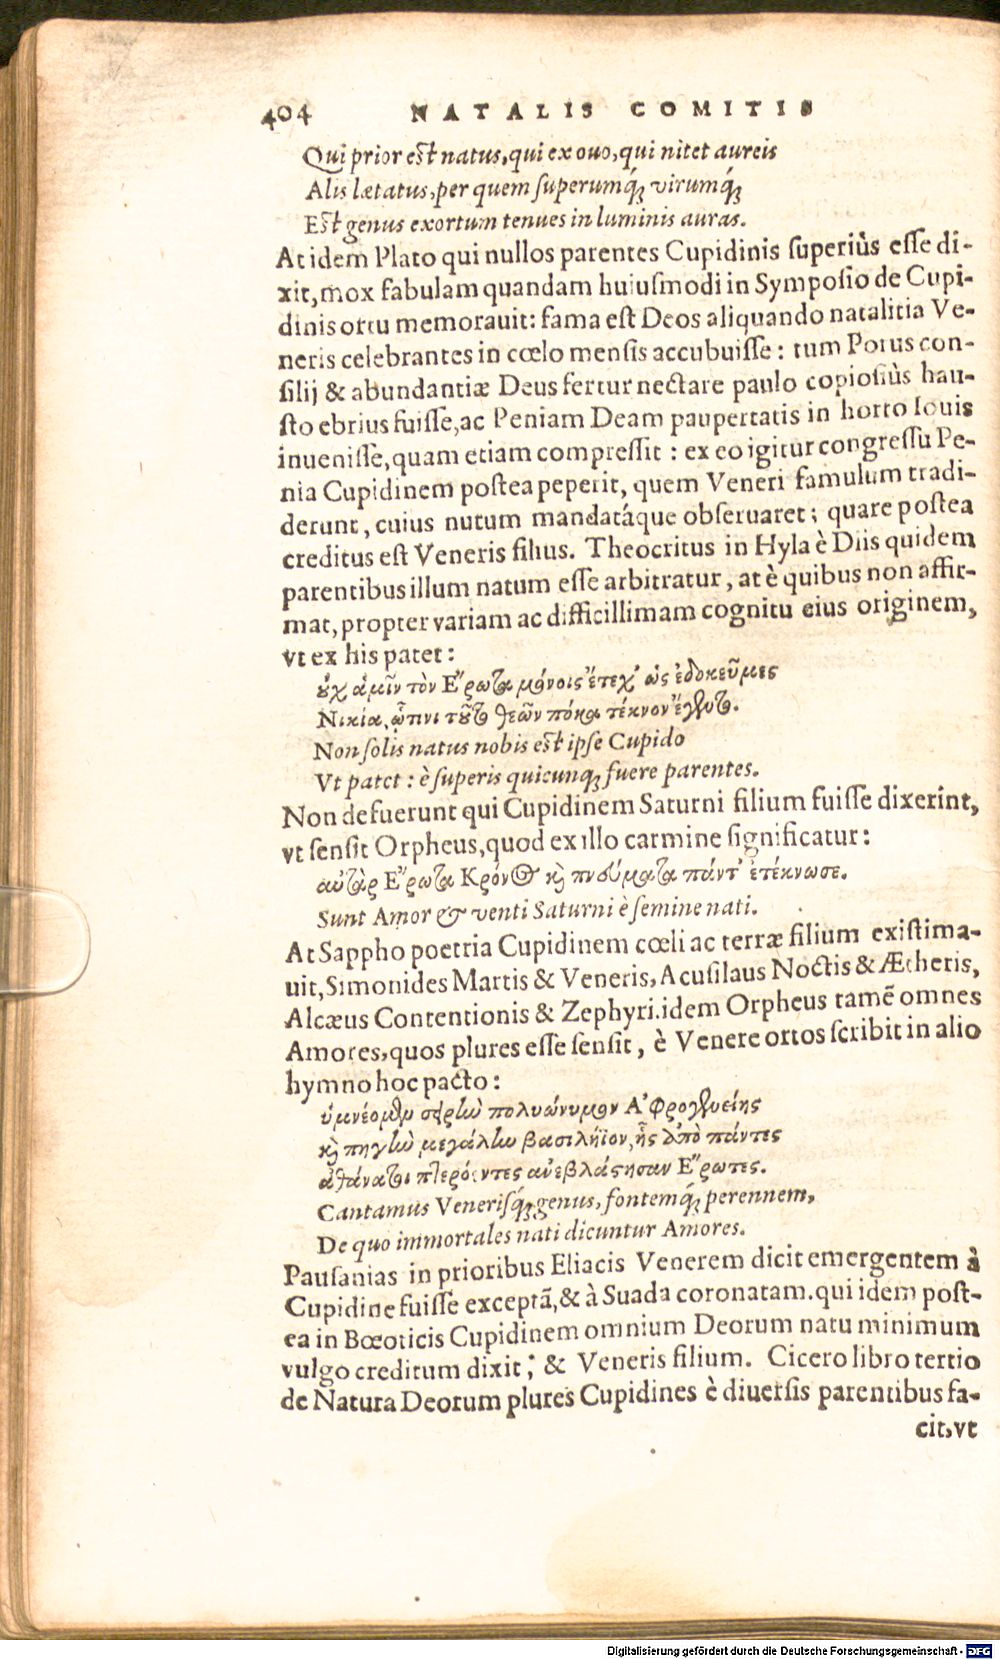 404 NATALIS COMITIS
Qui prior est natus, qui ex ouo, qui nitet aureis
Alis lætatus, per quem superumq́; virumq́;
Est genus exortum tenues in luminis auras.
At idem Plato qui nullos parentes Cupidinis superiùs esse di-
xit, mox fabulam quandam huiusmodi in Symposio de Cupi-
dinis ortu memorauit: fama est Deos aliquando natalitia Ve-
neris celebrantes in cœlo mensis accubuisse: tum Porus con-
silij & abundantiæ Deus fertur nectare paulo copiosiùs hau-
sto ebrius fuisse, ac Peniam Deam paupertatis in horto Iouis
inuenisse, quam etiam compressit: ex eo igitur congressu Pe-
nia Cupidinem postea peperit, quem Veneri famulum tradi-
derunt, cuius nutum mandatáque obseruaret; quare postea
creditus est Veneris filius. Theocritus in Hyla è Diis quidem
parentibus illum natum esse arbitratur, at è quibus non affir-
mat, propter variam ac difficillimam cognitu eius originem,
vt ex his patet:
οὐχ ἁμῖν τὸν Ἔρωτα μόνοις ἔτεχ᾽ ὡς ἐδοκεῦμες
Νικία, ᾧτινι τοῦτο θεῶν πόκα τέκνον ἔγεντο.
Non solis natus nobis est ipse Cupido
Vt patet: è superis quicunq; fuere parentes.
Non defuerunt qui Cupidinem Saturni filium fuisse dixerint,
vt sensit Orpheus, quod ex illo carmine significatur:
αὐτὰρ Ἔρωτα Κρόνος καὶ πνεύματα πάντ᾽ ἐτέκνωσε.
Sunt Amor & venti Saturni è semine nati.
At Sappho poetria Cupidinem cœli ac terræ filium existima-
uit, Simonides Martis & Veneris, Acusilaus Noctis & Ætheris,
Alcæus Contentionis & Zephyri. idem Orpheus tamē omnes
Amores, quos plures esse sensit, è Venere ortos scribit in alio
hymno hoc pacto:
ὑμνέομεν σειρὴν πολυώνυμον Ἀφρογενείης
καὶ πηγὴν μεγάλην βασιλήϊον, ἧς ἀπὸ πάντες
ἀθάνατοι πτερόεντες ἀνεβλάστησαν Ἔρωτες.
Cantamus Venerisq́; genus, fontemq́; perennem,
De quo immortales nati dicuntur Amores.
Pausanias in prioribus Eliacis Venerem dicit emergentem à
Cupidine fuisse exceptā, & à Suada coronatam. qui idem post-
ea in Bœoticis Cupidinem omnium Deorum natu minimum
vulgo creditum dixit; & Veneris filium. Cicero libro tertio
de Natura Deorum plures Cupidines è diuersis parentibus fa-
cit, vt
Digitalisierung gefördert durch die Deutsche Forschungsgemeinschaft - DFG